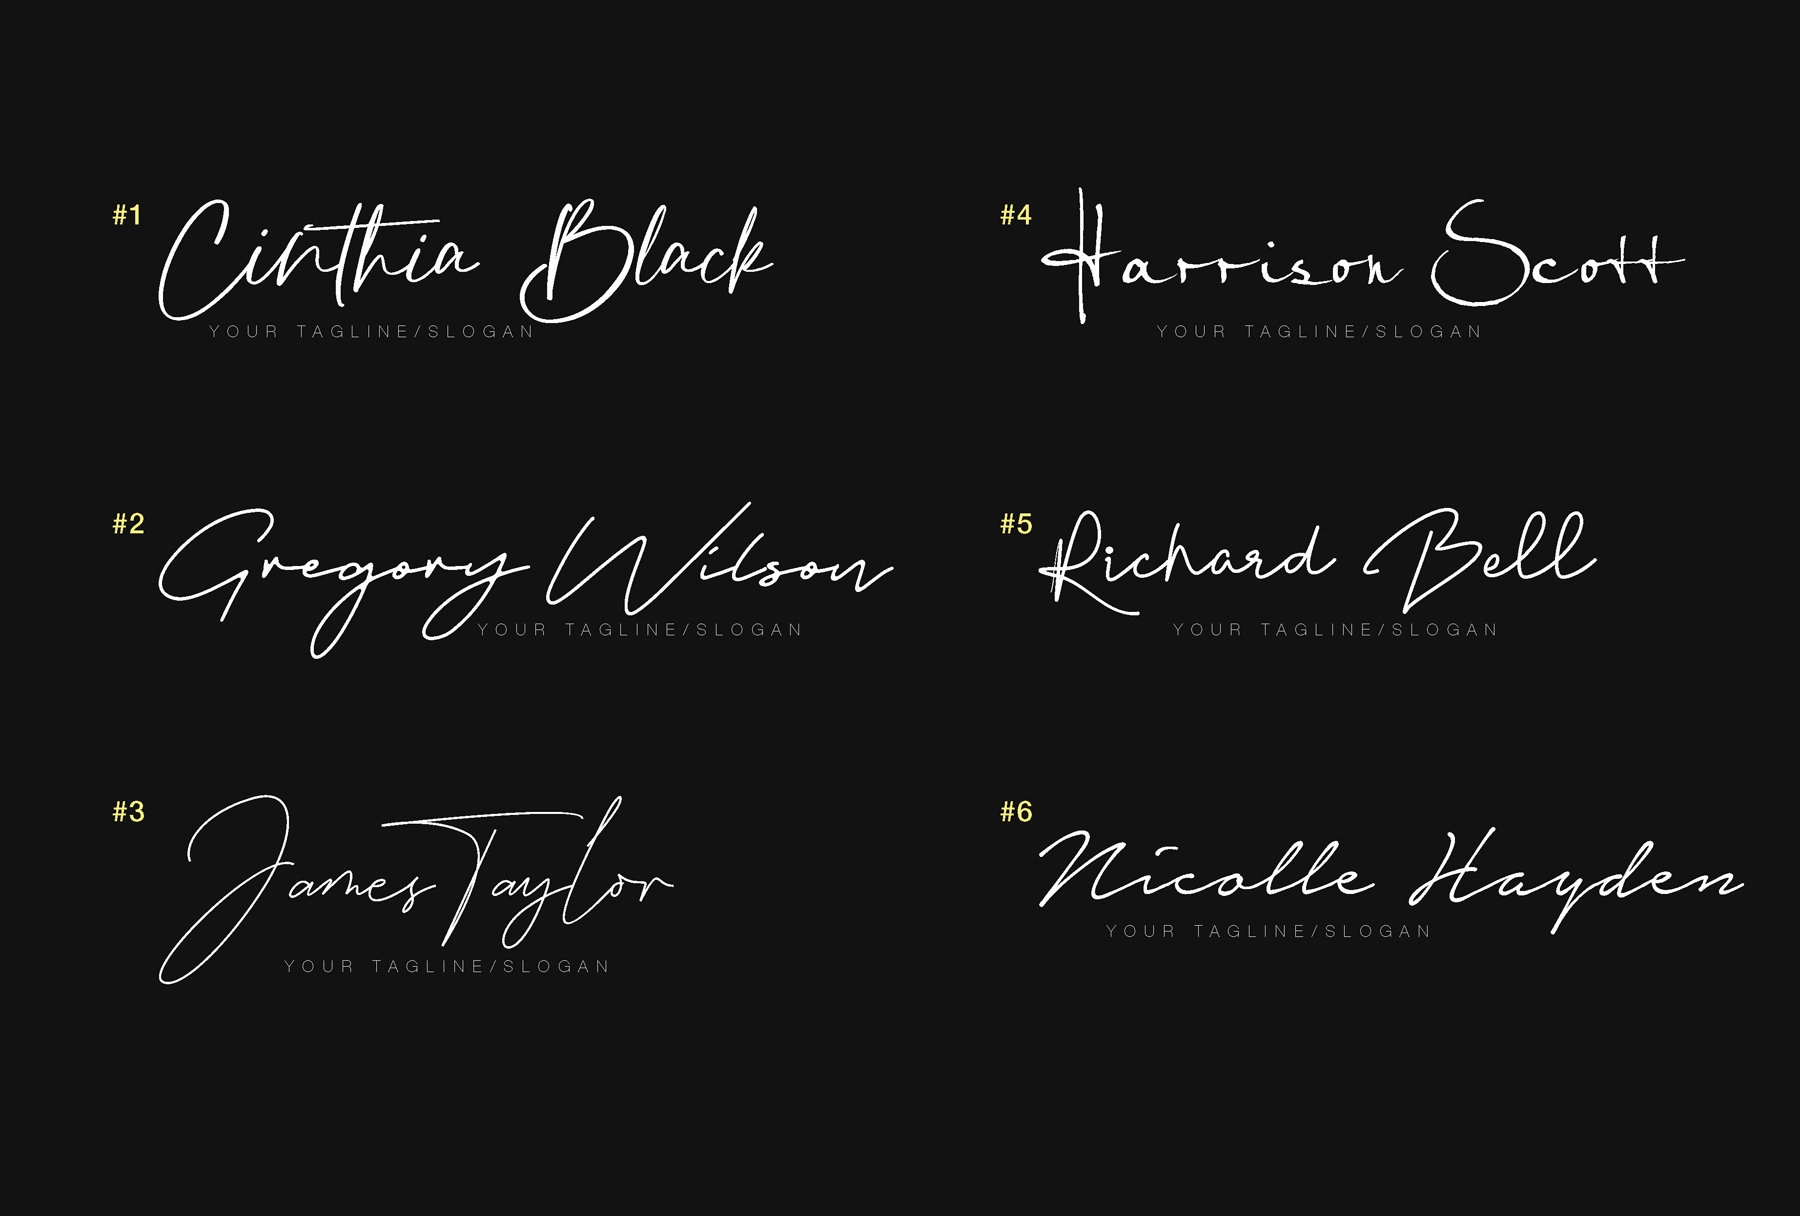 #1 Cinthia Black
YOUR TAGLINE/SLOGAN
#2 Gregory Wilson
YOUR TAGLINE/SLOGAN
#3 James Taylor
YOUR TAGLINE/SLOGAN
#4 Harrison Scott
YOUR TAGLINE/SLOGAN
#5 Richard Bell
YOUR TAGLINE/SLOGAN
#6 Nicolle Hayden
YOUR TAGLINE/SLOGAN